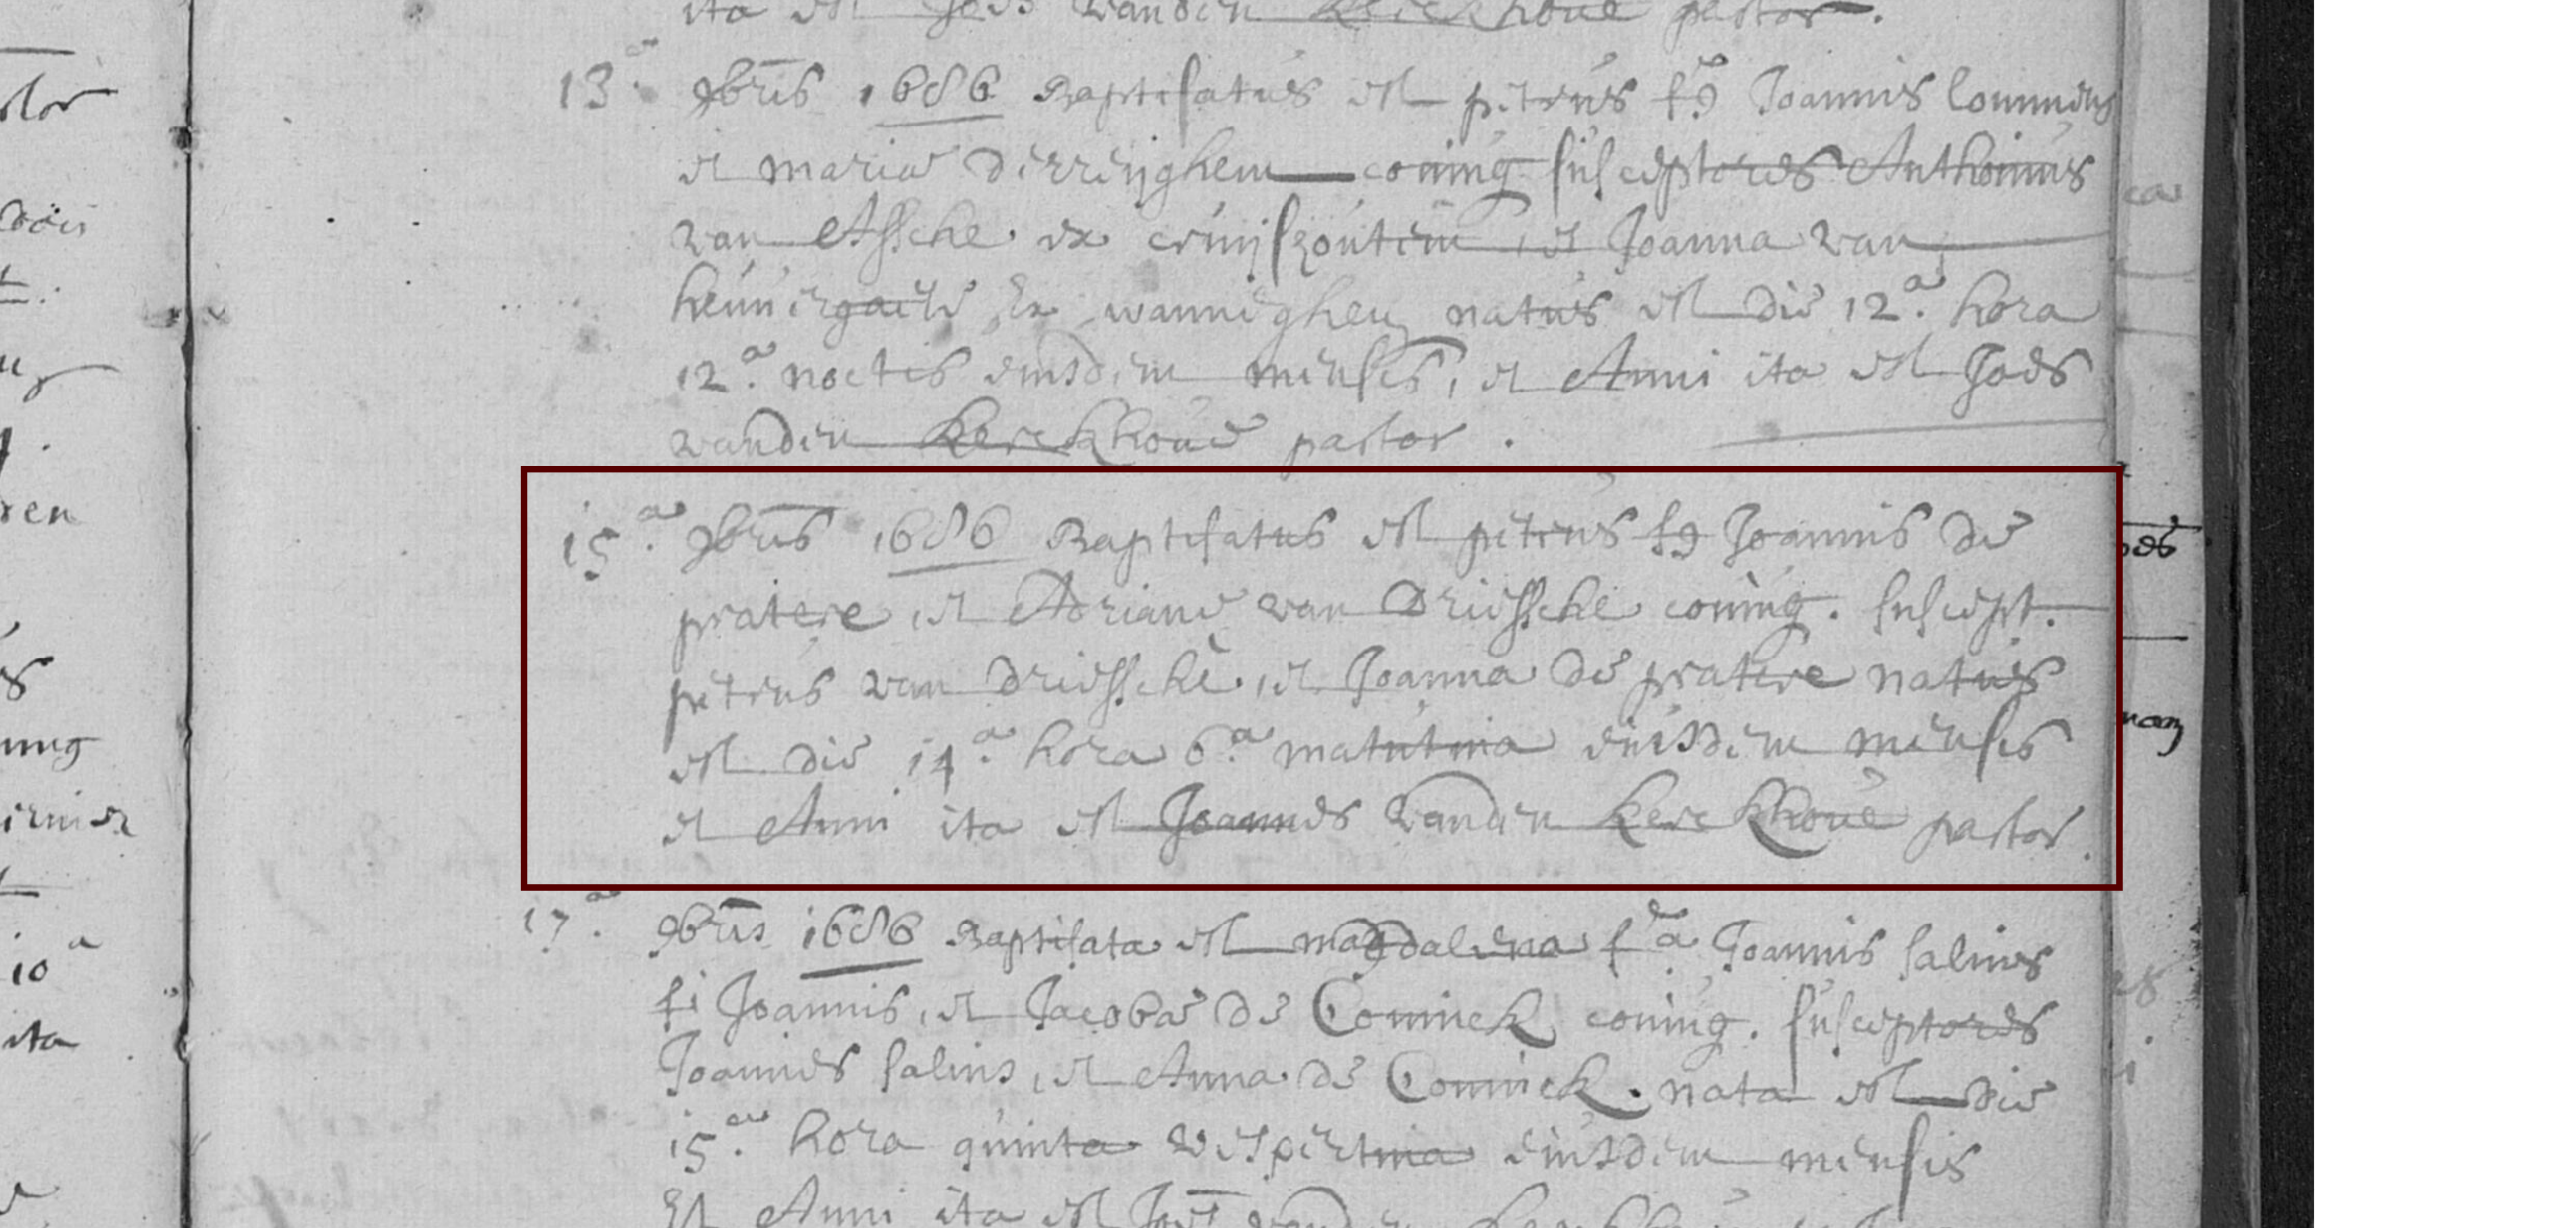 ita est Joēs vanden Kerckhove pastor.
13ª 9bris 1686 Baptisatus est petrus fs Joannis
et mariæ Derreijghem coniug susceptores Anthonius
van Assche ex cruijshoutem, et Joanna van
ex wanneghem natus est die 12.ª hora
12.ª noctis eiusdem mensis, et Anni ita est Joēs
vanden Kerckhove pastor.
15.ª 9bris 1686 Baptisatus est petrus fs Joannis de
pratere, et Adrianæ van Driessche coniug. suscept.
petrus van driessche, et Joanna de pratere natus
est die 14.ª hora 6.ª matutina eiusdem mensis
et Anni ita est Joannes vanden Kerckhove pastor.
17.ª 9bris 1686 Baptisata est magdalena fª Joannis salins
fi Joannis, et Jacobæ de Coninck coniug. susceptores
Joannes salins, et Anna de Coninck. nata est die
15.ª hora quinta vespertina eiusdem mensis
Et Anni ita est
ren
10ª
ita